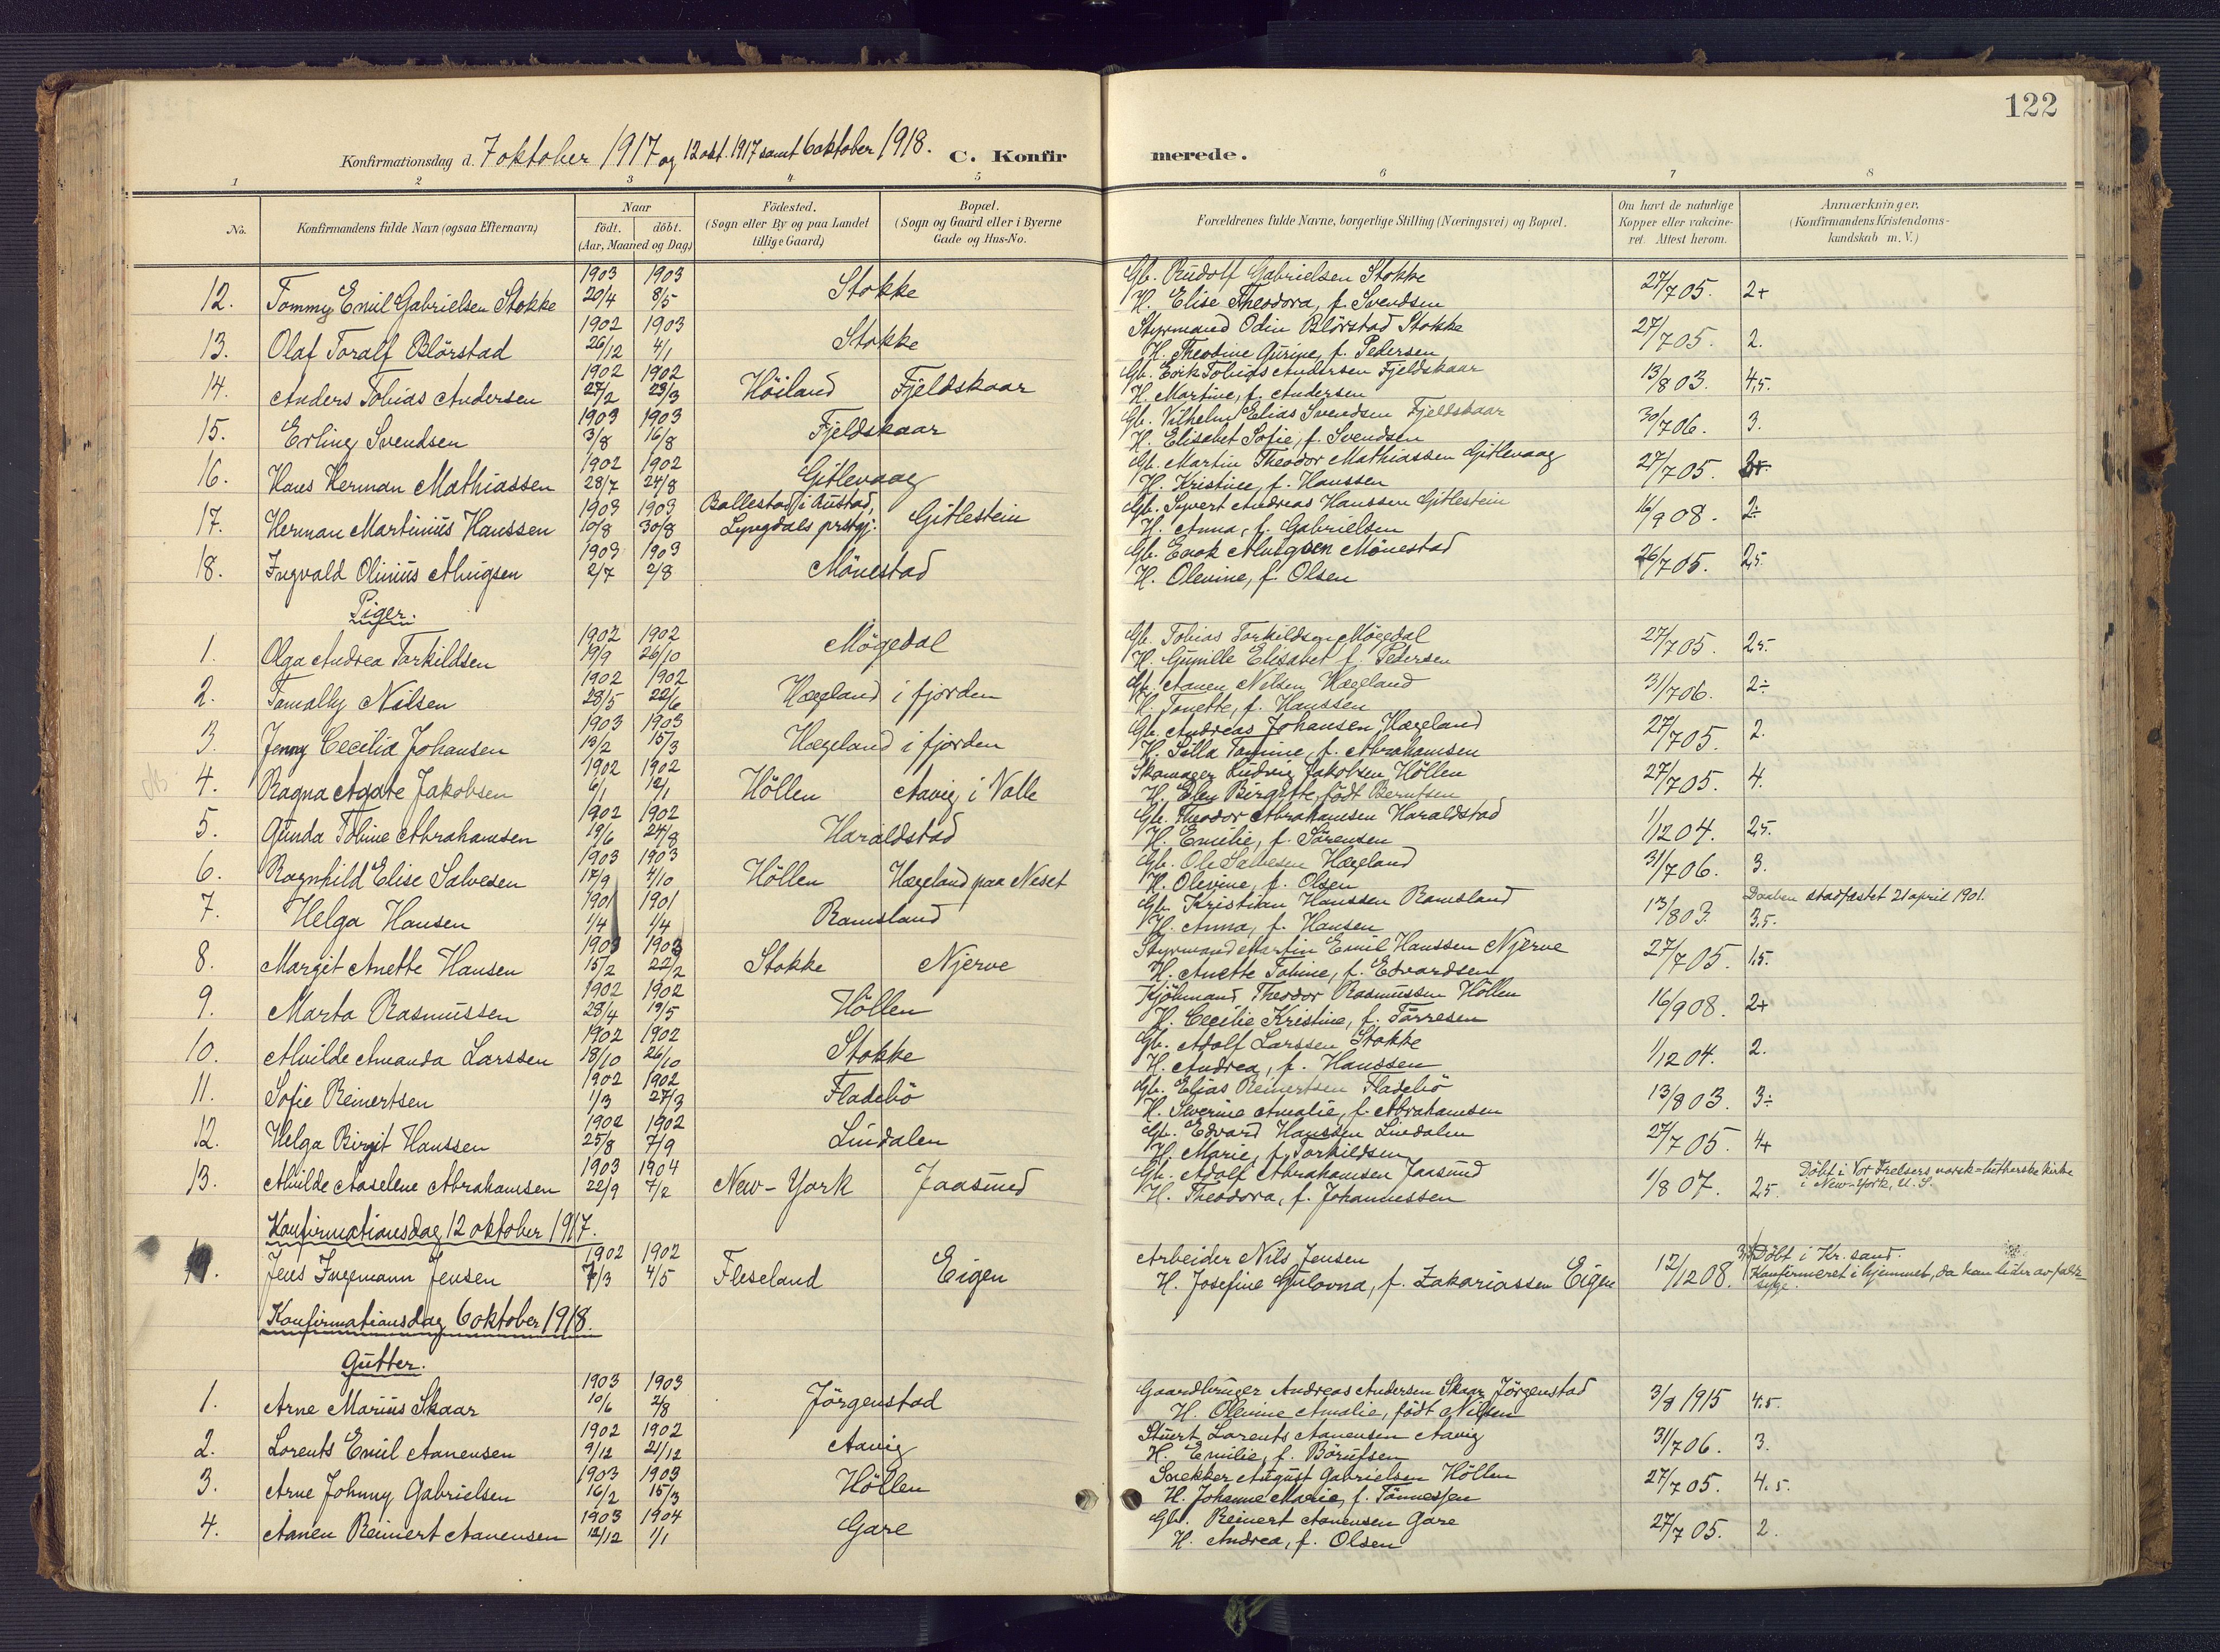 122
Konfirmationsdag d. 7 oktober 1917 og 12 okt. 1917 samt 6 oktober 1918. C. Konfirmerede.
1 2 3 4 5 6 7 8
No. Konfirmandens fulde Navn (ogsaa Efternavn) Naar født. døbt. (Aar, Maaned og Dag) Födested. (Sogn eller By og paa Landet tillige Gaard) Bopæl. (Sogn og Gaard eller i Byerne Gade og Hus-No. Forældrenes fulde Navne, borgerlige Stilling (Næringsvei) og Bopæl. Om havt de naturlige Kopper eller vakcineret. Attest herom. Anmærkninger. (Konfirmandens Kristendomskundskab m. V.)
1903 1903 Gb. Rudolf Gabrielsen Stokke
12. Tommy Emil Gabrielsen Stokke 20/4 8/5 Stokke H. Elise Theodora, f. Svendsen 27/7 05. 2+
1902 1903 Styrmand Odin Blörstad Stokke
13. Olaf Toralf Blörstad 26/12 4/1 Stokke H. Theodine Gurine, f. Pedersen 27/7 05. 2.
1902 1902 Gb. Erik Tobias Andersen Fjeldskaar
14. Anders Tobias Andersen 27/2 23/3 Höiland Fjeldskaar H. Martine, f. Andersen 13/8 03. 4,5.
1903 1903 Gb. Vilhelm Elias Svendsen Fjeldskaar
15. Erling Svendsen 3/8 16/8 Fjeldskaar H. Elisabet Sofie, f. Svendsen 30/7 06. 3.
1902 1902 Gb. Martin Theodor Mathiassen Gitlevaag
16. Hans Herman Mathiassen 28/7 24/8 Gitlevaag H. Kristine, f. Hanssen 27/7 05.
1903 1903 Ballestad i Austad, Gb. Syvert Andreas Hanssen Gitlestein
17. Herman Martinius Hanssen 10/8 30/8 Lyngdals prstgj. Gitlestein H. Anna, f. Gabrielsen 16/9 08. 2÷
1903 1903 Gb. Enok Alvigsen Mönestad
18. Ingvald Olinius Alvigsen 2/7 2/8 Mönestad H. Olevine, f. Olsen 26/7 05. 2,5.
Piger.
1902 1902 Gb. Tobias Torkildsen Mögedal
1. Olga Andrea Torkildsen 19/9 26/10 Mögedal H. Gunille Elisabet f. Pedersen 27/7 05. 2,5.
1902 1902 Gb. Aanen Nilsen Hægeland
2. Tomally Nilsen 28/5 22/6 Hægeland i fjorden H. Tonette, f. Hanssen 31/7 06. 2÷
1903 1903 Gb. Andreas Johansen Hægeland
3. Jenny Cecilia Johansen 13/2 15/3 Hægeland i fjorden H. Silla Tomine, f. Abrahamsen 27/7 05. 2.
1902 1902 Skomager Ludvig Jakobsen Höllen
4. Ragna Agate Jakobsen 6/1 12/1 Höllen Aavig i Valle H. Elen Birgitte, født Berntsen 27/7 05. 4.
1902 1902 Gb. Theodor Abrahamsen Haraldstad
5. Gunda Tobine Abrahamsen 19/6 24/8 Haraldstad H. Emilie, f. Sörensen 1/12 04. 2,5.
1903 1903 Gb. Ole Salvesen Hægeland
6. Ragnhild Elise Salvesen 17/9 4/10 Höllen Hægeland paa Neset H. Olevine, f. Olsen 31/7 06. 3.
1901 1901 Gb. Kristian Hanssen Ramsland Daaben stadfæstet 21 april 1901.
7. Helga Hansen 1/4 1/4 Ramsland H. Anna, f. Hansen 13/8 03. 3,5.
1903 1903 Styrmand Martin Emil Hanssen Njerve
8. Margit Anette Hansen 15/2 22/2 Stokke Njerve H. Anette Tobine, f. Edvardsen 27/7 05. 1,5.
1902 1902 Kjöbmand Theodor Rasmussen Höllen
9. Marta Rasmussen 28/4 19/5 Höllen H. Cecilie Kristine, f. Törresen 16/9 08. 2+
1902 1902 Gb. Adolf Larssen Stokke
10. Alvilde Amanda Larssen 18/10 26/10 Stokke H. Andrea, f. Hanssen 1/12 04. 2.
1902 1902 Gb. Elias Reinertsen Fladebö
11. Sofie Reinertsen 1/3 27/3 Fladebö H. Severine Amalie, f. Abrahamsen 13/8 03. 3÷
1902 1902 Gb. Edvard Hanssen Lindalen
12. Helga Birgit Hanssen 25/8 7/9 Lindalen H. Marie, f. Torkildsen 27/7 05. 4+
1903 1904 Gb. Adolf Abrahamsen Jaasund Döbt i Vor Frelsers norsk-lutherske kirke
13. Alvilde Aaselene Abrahamsen 22/9 7/2 New-York Jaasund H. Theodora, f. Johannessen 1/8 07. 2,5. i New-York, U. S.
Konfirmationsdag 12 oktober 1917.
1902 1902 Arbeider Nils Jensen Döbt i Kr.sand.
Jens Ingemann Jensen 4/5 Fleseland Eigen H. Josefine Gulovna, f. Zakariassen Eigen 12/12 08. Konfirmeret i hjemmet, da han lider av faldesyge.
Konfirmationsdag 6 oktober 1918.
Gutter.
1903 1903 Gaardbruger Andreas Andersen Skaar Jörgenstad
1. Arne Marius Skaar 10/6 2/8 Jörgenstad H. Olevine Amalie, født Nilsen 3/8 1915 4,5.
1902 1902 Stuert Lorents Aanensen Aavig
2. Lorents Emil Aanensen 9/12 21/12 Aavig H. Emilie, f. Börufsen 31/7 06. 3.
1903 1903 Snekker August Gabrielsen Höllen
3. Arne Johnny Gabrielsen 16/2 15/3 Höllen H. Johanne Marie, f. Tönnessen 27/7 05. 4,5.
1903 1904 Gb. Reinert Aanensen Gare
4. Aanen Reinert Aanensen 12/12 1/1 Gare H. Andrea, f. Olsen 27/7 05. 2.